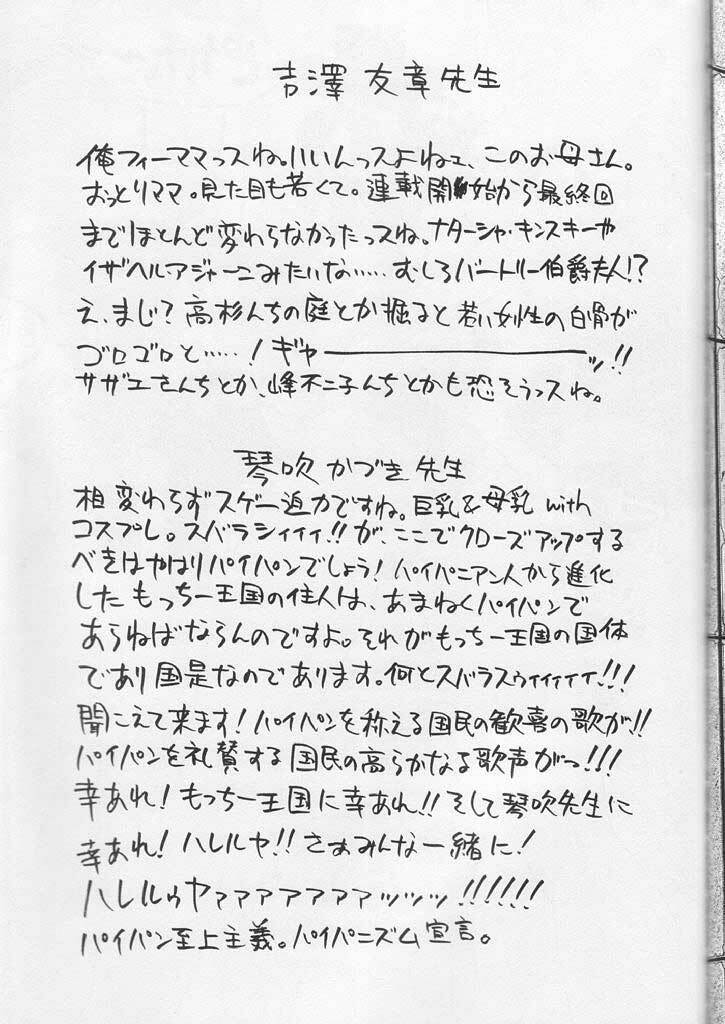 吉澤友章先生
俺フィーママっスね。いいんっスよねェ、このお母さん。
おっとりママ。見た目も若くて。連載開始から最終回
までほとんど変わらなかったっスね。ナターシャ・キンスキーや
イザベル・アジャーニみたいな……むしろバートリー伯爵夫人!?
え、まじ?高杉んちの庭とか掘ると若い女性の白骨が
ゴロゴロと……!ギャーーーーーーーッ!!
サザエさんちとか、峰不二子んちとかも恐そうっスね。
琴吹かづき先生
相変わらずスゲー迫力ですね。巨乳&母乳with
コスプレ。スバラシィィィ!!が、ここでクローズアップする
べきはやはりパイパンでしょう!パイパニアン人から進化
したもっちー王国の住人は、あまねくパイパンで
あらねばならんのですよ。それがもっちー王国の国体
であり国是なのであります。何とスバラスゥィィィィ!!!
聞こえて来ます!パイパンを称える国民の歓喜の歌が!!
パイパンを礼賛する国民の高らかなる歌声がっ!!!
幸あれ!もっちー王国に幸あれ!!そして琴吹先生に
幸あれ!ハレルヤ!!さぁみんな一緒に!
ハレルゥヤァァァァァァァッッッ!!!!!!
パイパン至上主義。パイパニズム宣言。